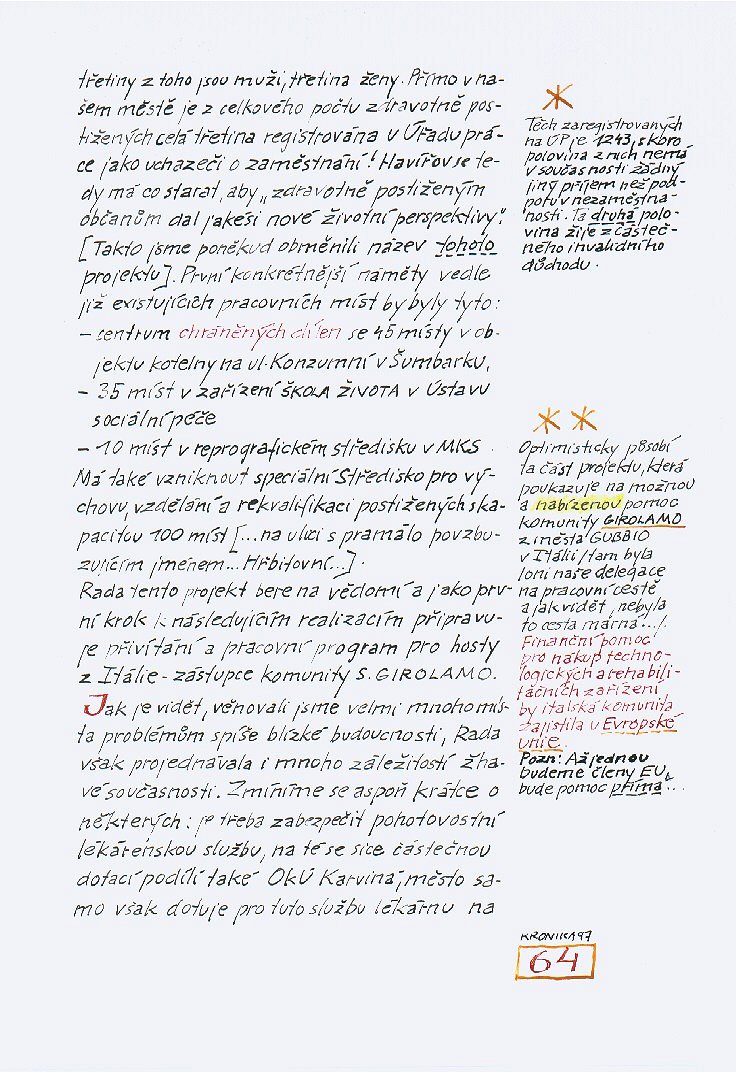 třetiny z toho jsou muži, třetina ženy. Přímo v na-
šem městě je z celkového počtu zdravotně pos-
tižených celá třetina registrována u Úřadu prá-
ce jako uchazeči o zaměstnání! Havířov se te-
dy má co starat, aby „zdravotně postiženým
občanům dal jakési nové životní perspektivy".
[Takto jsme poněkud obměnili název tohoto
projektu]. První konkrétnější náměty vedle
již existujících pracovních míst by byly tyto:
– centrum chráněných dílen se 45 místy v ob-
jektu kotelny na ul. Konzumní v Šumbarku,
– 35 míst v zařízení ŠKOLA ŽIVOTA v Ústavu
sociální péče
– 10 míst v reprografickém středisku v MKS.
Má také vzniknout speciální Středisko pro vý-
chovu, vzdělání a rekvalifikaci postižených s ka-
pacitou 100 míst [...na ulici s pramálo povzbu-
zujícím jménem... Hřbitovní...].
Rada tento projekt bere na vědomí a jako prv-
ní krok k následujícím realizacím připravu-
je přivítání a pracovní program pro hosty
z Itálie - zástupce komunity S. GIROLAMO.
Jak je vidět, věnovali jsme velmi mnoho mís-
ta problémům spíše blízké budoucnosti, Rada
však projednávala i mnoho záležitostí žha-
vé současnosti. Zmíníme se aspoň krátce o
některých: je třeba zabezpečit pohotovostní
lékárenskou službu, na té se sice částečnou
dotací podílí také OkÚ Karviná, město sa-
mo však dotuje pro tuto službu lékárnu na
*
Těch zaregistrovaných
na ÚP je 1243, skoro
polovina z nich nemá
v současnosti žádný
jiný příjem než pod-
poru v nezaměstna-
nosti. Ta druhá polo-
vina žije z částeč-
ného invalidního
důchodu.
* *
Optimisticky působí
ta část projektu, která
poukazuje na možnou
a nabízenou pomoc
komunity GIROLAMO
z města GUBBIO
v Itálii /tam byla
loni naše delegace
na pracovní cestě
a jak vidět, nebyla
to cesta marná.../.
Finanční pomoc
pro nákup techno-
logických a rehabili-
tačních zařízení
by italská komunita
zajistila u Evropské
unie.
Pozn: Až jednou
budeme členy EU,
bude pomoc přímá...
KRONIKA 97
64